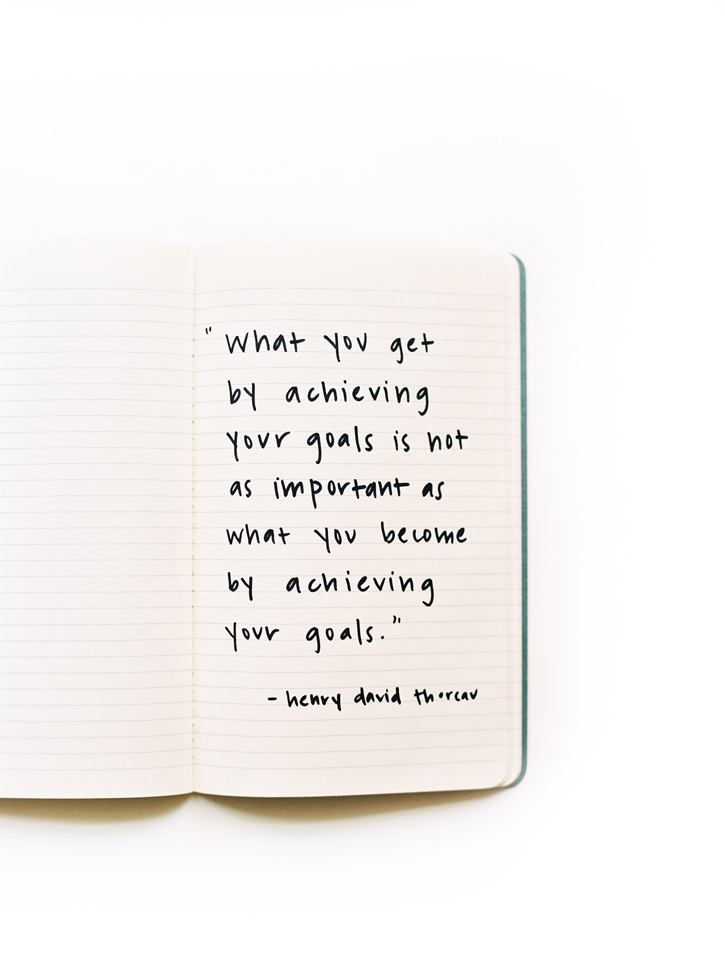 "What you get
by achieving
your goals is not
as important as
what you become
by achieving
your goals."
- henry david thoreau